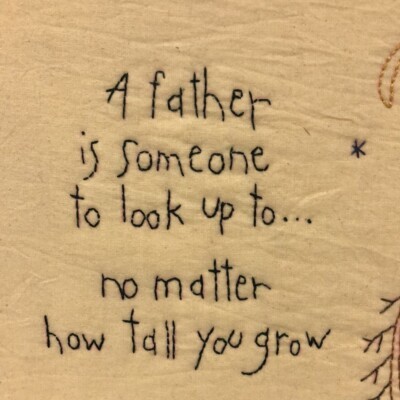 A father
is someone
to look up to...
no matter
how tall you grow